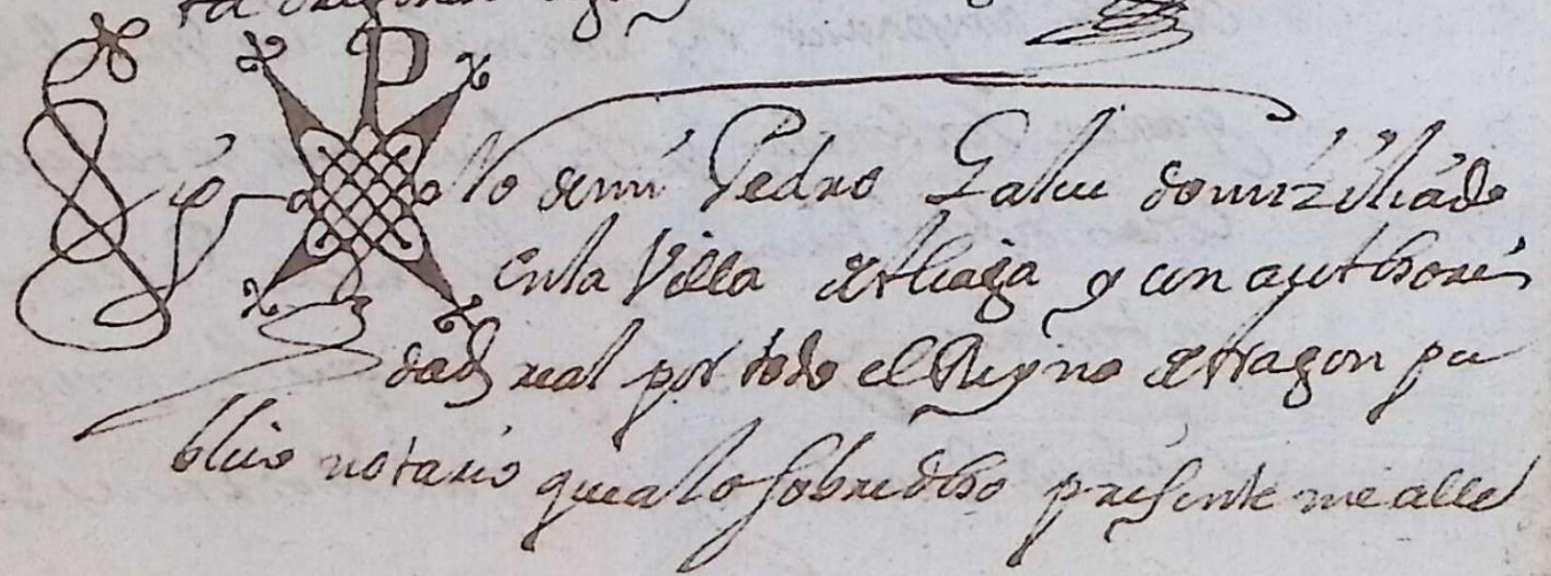 Sig-P-No de mi Pedro Galve domiziliado
en la Villa de Aliaga y con authori
dad real por todo el Reyno de Aragon pu
blico notario que a lo sobredho presente me alle